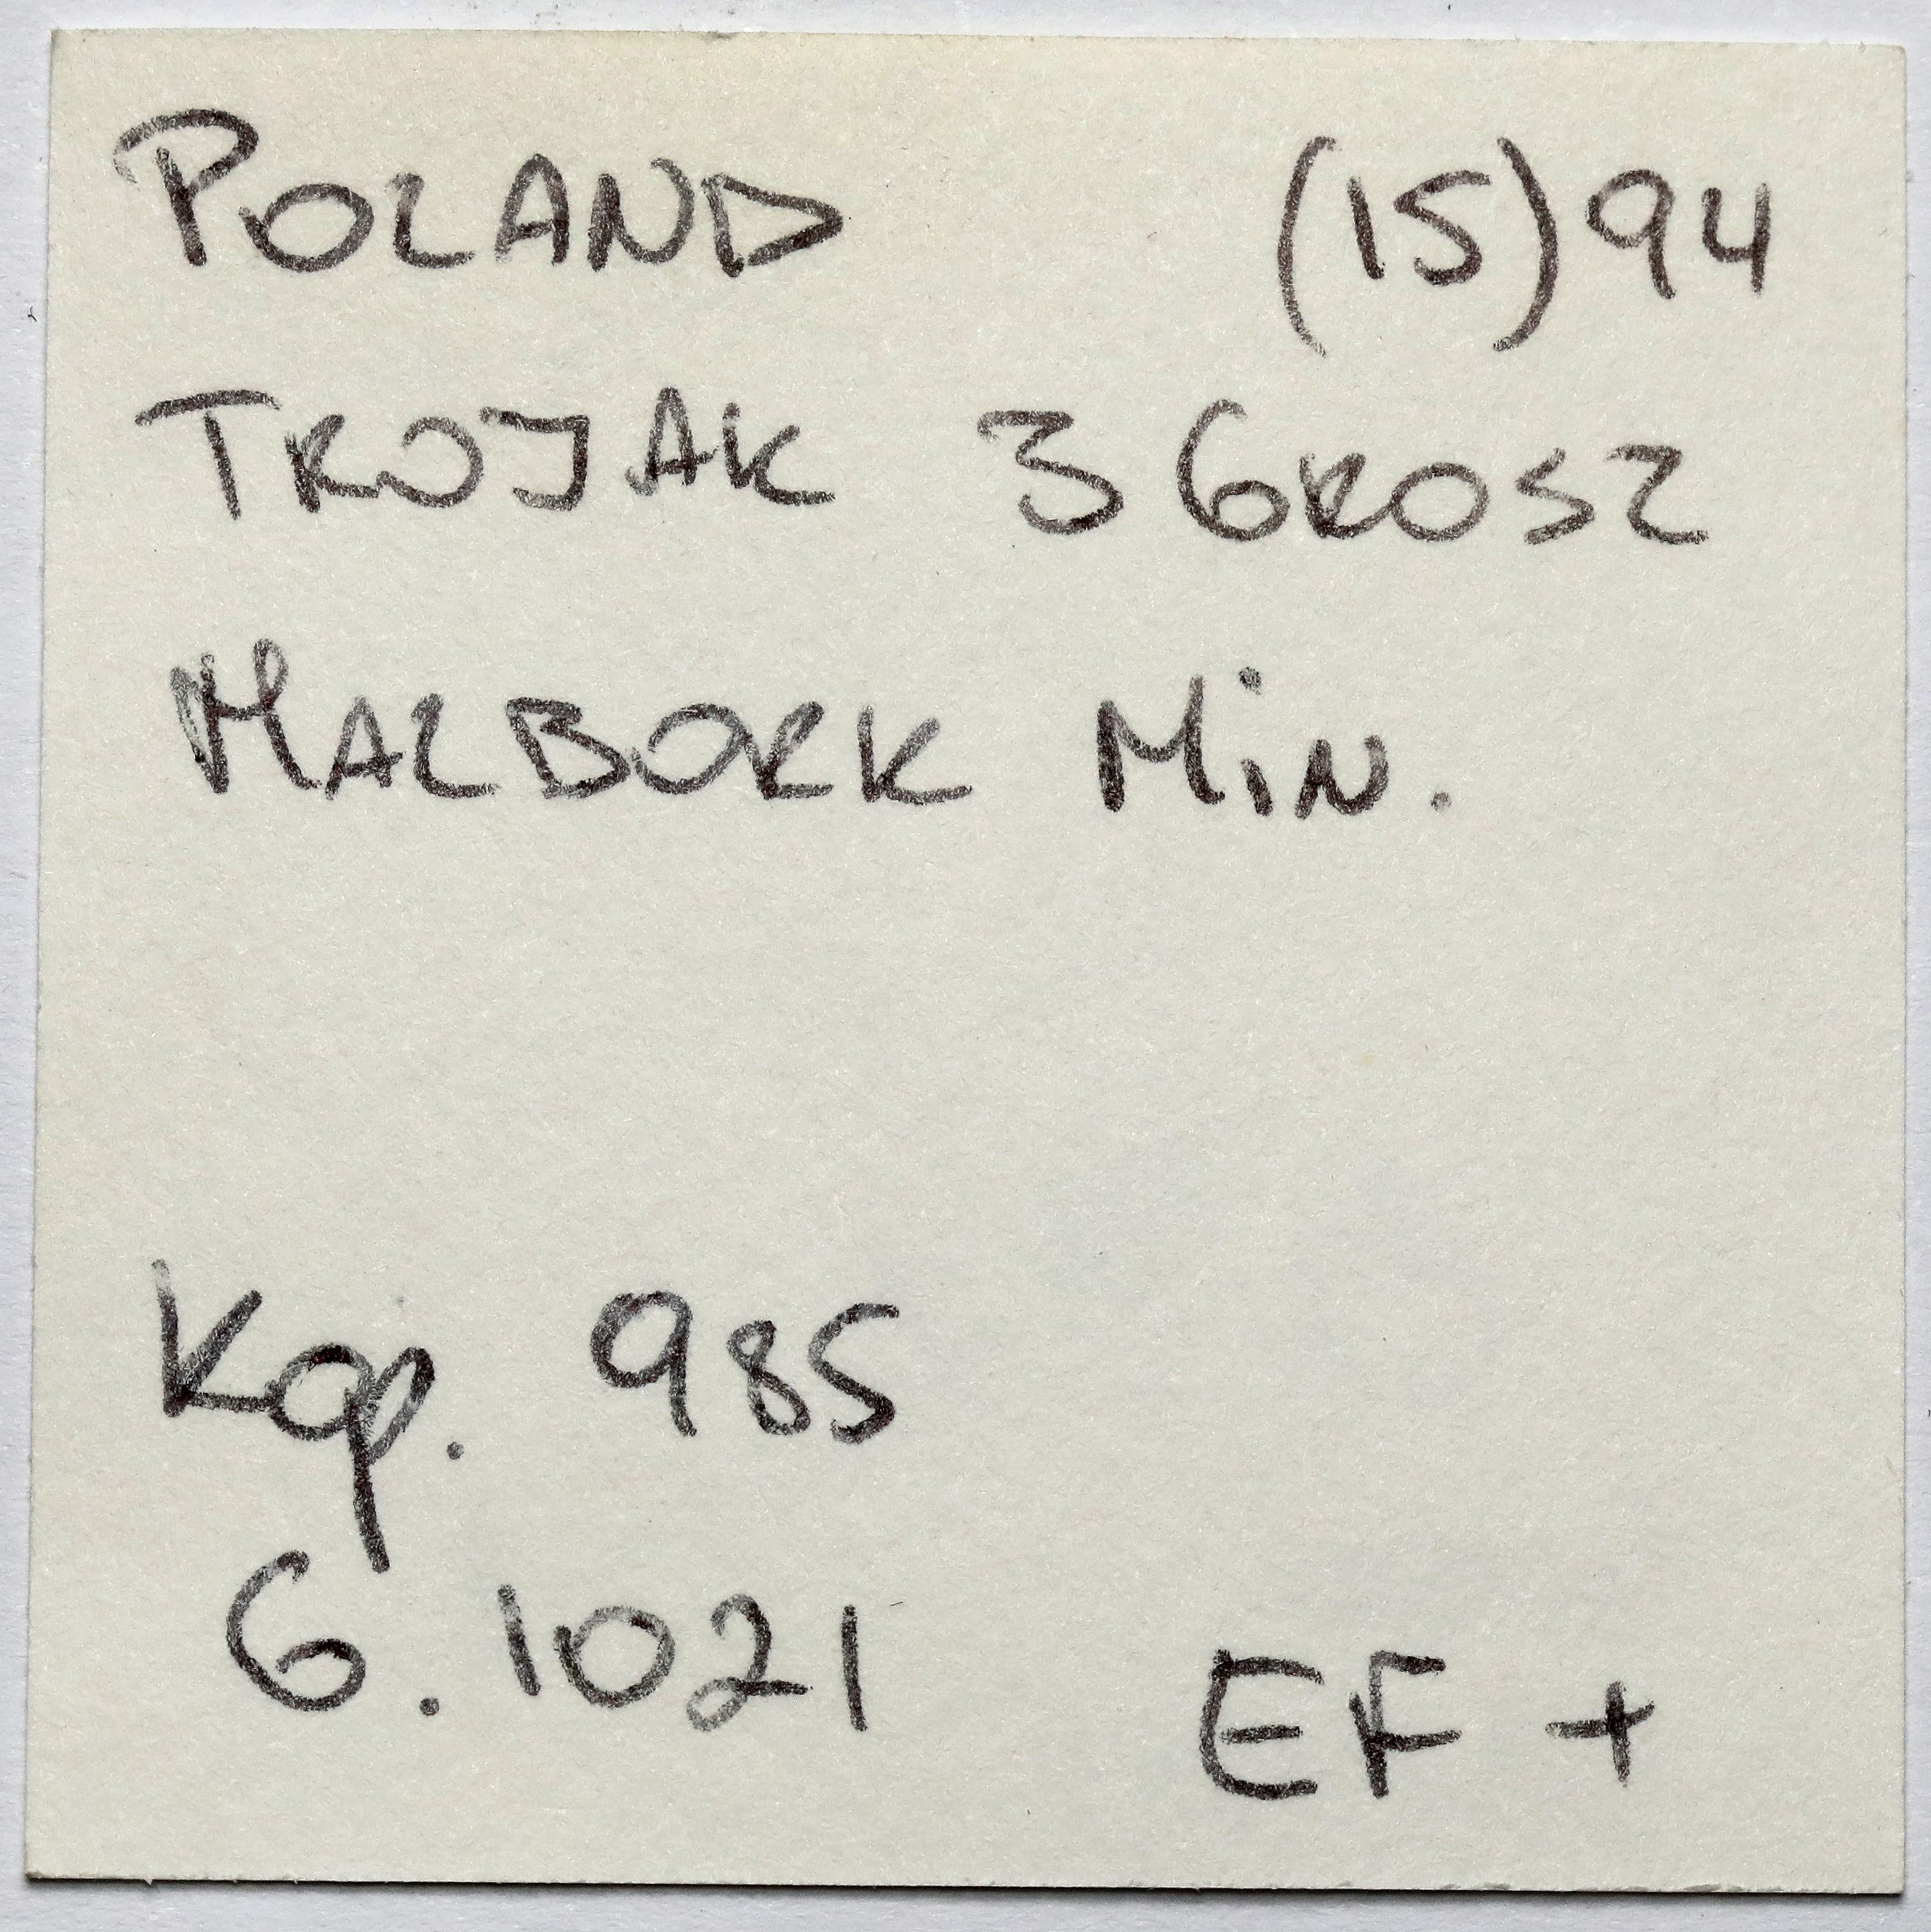 POLAND (15)94
TROJAK 3 GROSZ
MALBORK MiN.
Kop. 985
G. 1021
EF +